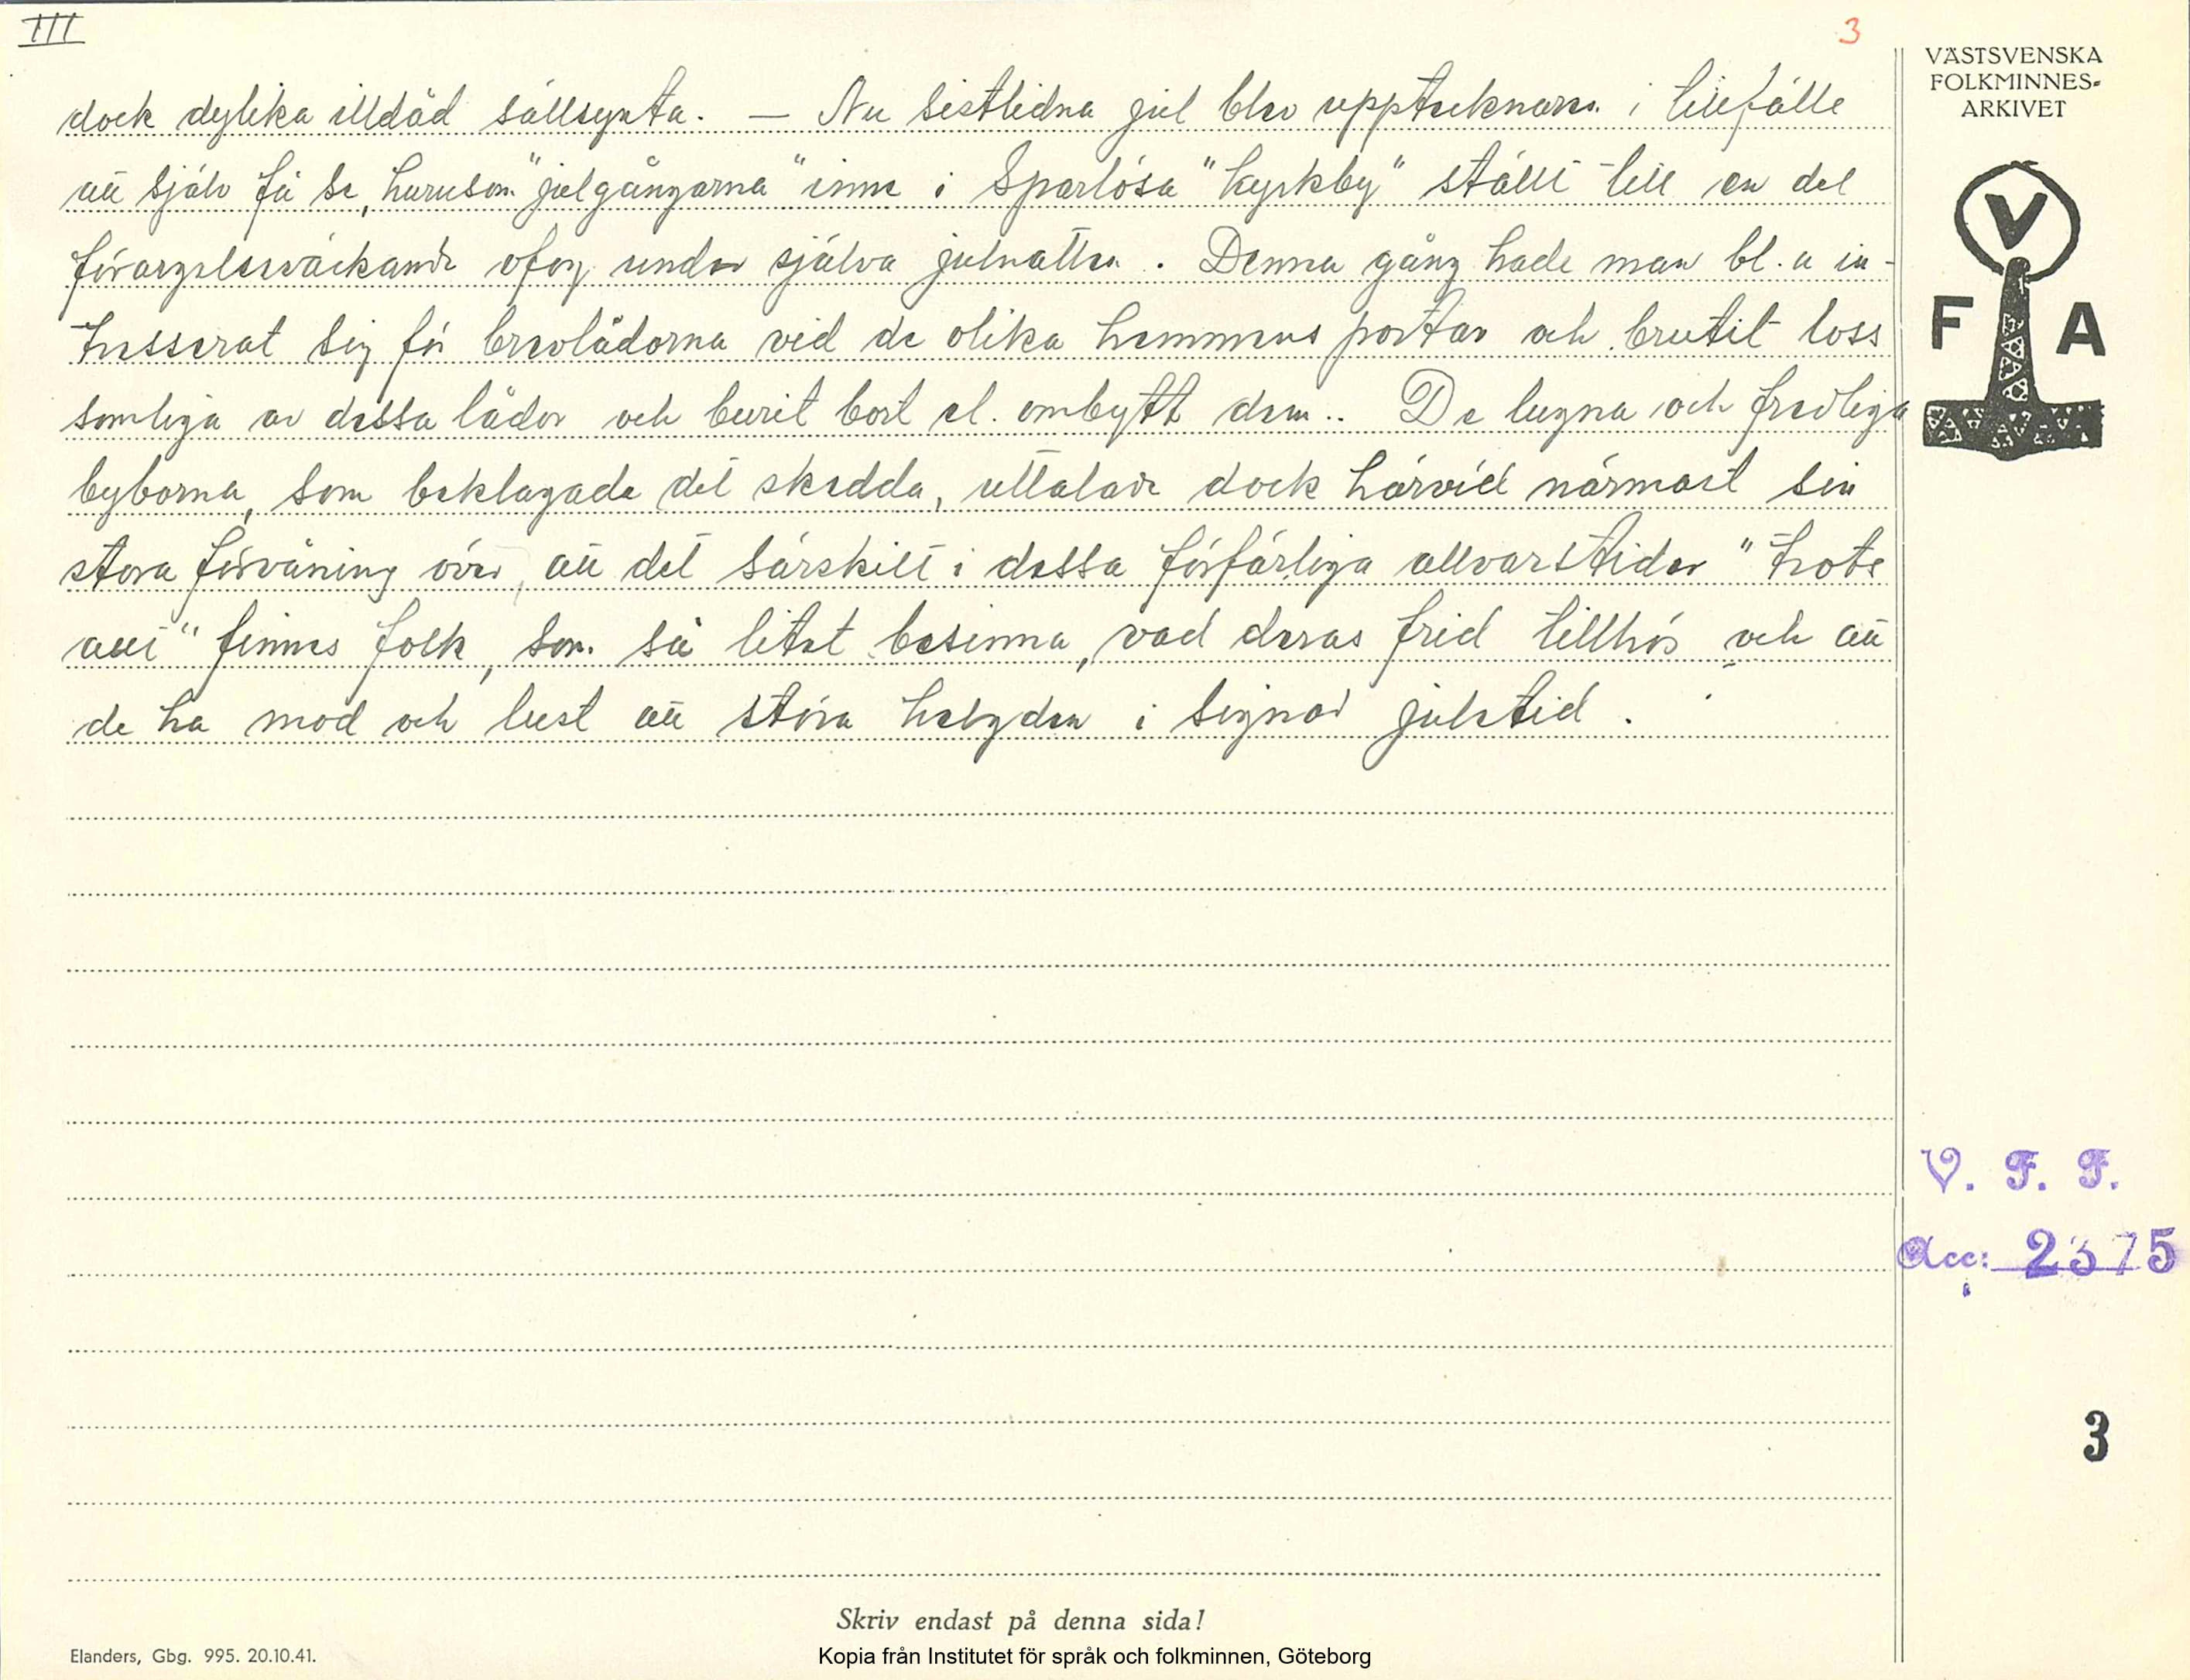 III
3
dock dylika illdåd sällsynta. — Nu sistlidna jul blev upptecknaren i tillfälle
att själv få se, hurusom "julgångarna" inne i Sparlösa "kyrkby" ställt till en del
förargelseväckande ofog under själva julnatten. Denna gång hade man bl. a in-
tresserat sig för brevlådorna vid de olika hemmens portar och brutit loss
somliga av dessa lådor och burit bort el. ombytt dem.. De lugna och fredliga
byborna, som beklagade det skedda, uttalade dock härvid närmast sin
stora förvåning över, att det särskilt i dessa förfärliga allvarstider "trots
allt" finnes folk, som så litet besinna, vad deras frid tillhör och att
de ha mod och lust att störa helgden i signad juletid.
VÄSTSVENSKA
FOLKMINNES-
ARKIVET
V
F A
V. F. F.
Acc: 2375
3
Skriv endast på denna sida!
Elanders, Gbg. 995. 20.10.41.
Kopia från Institutet för språk och folkminnen, Göteborg